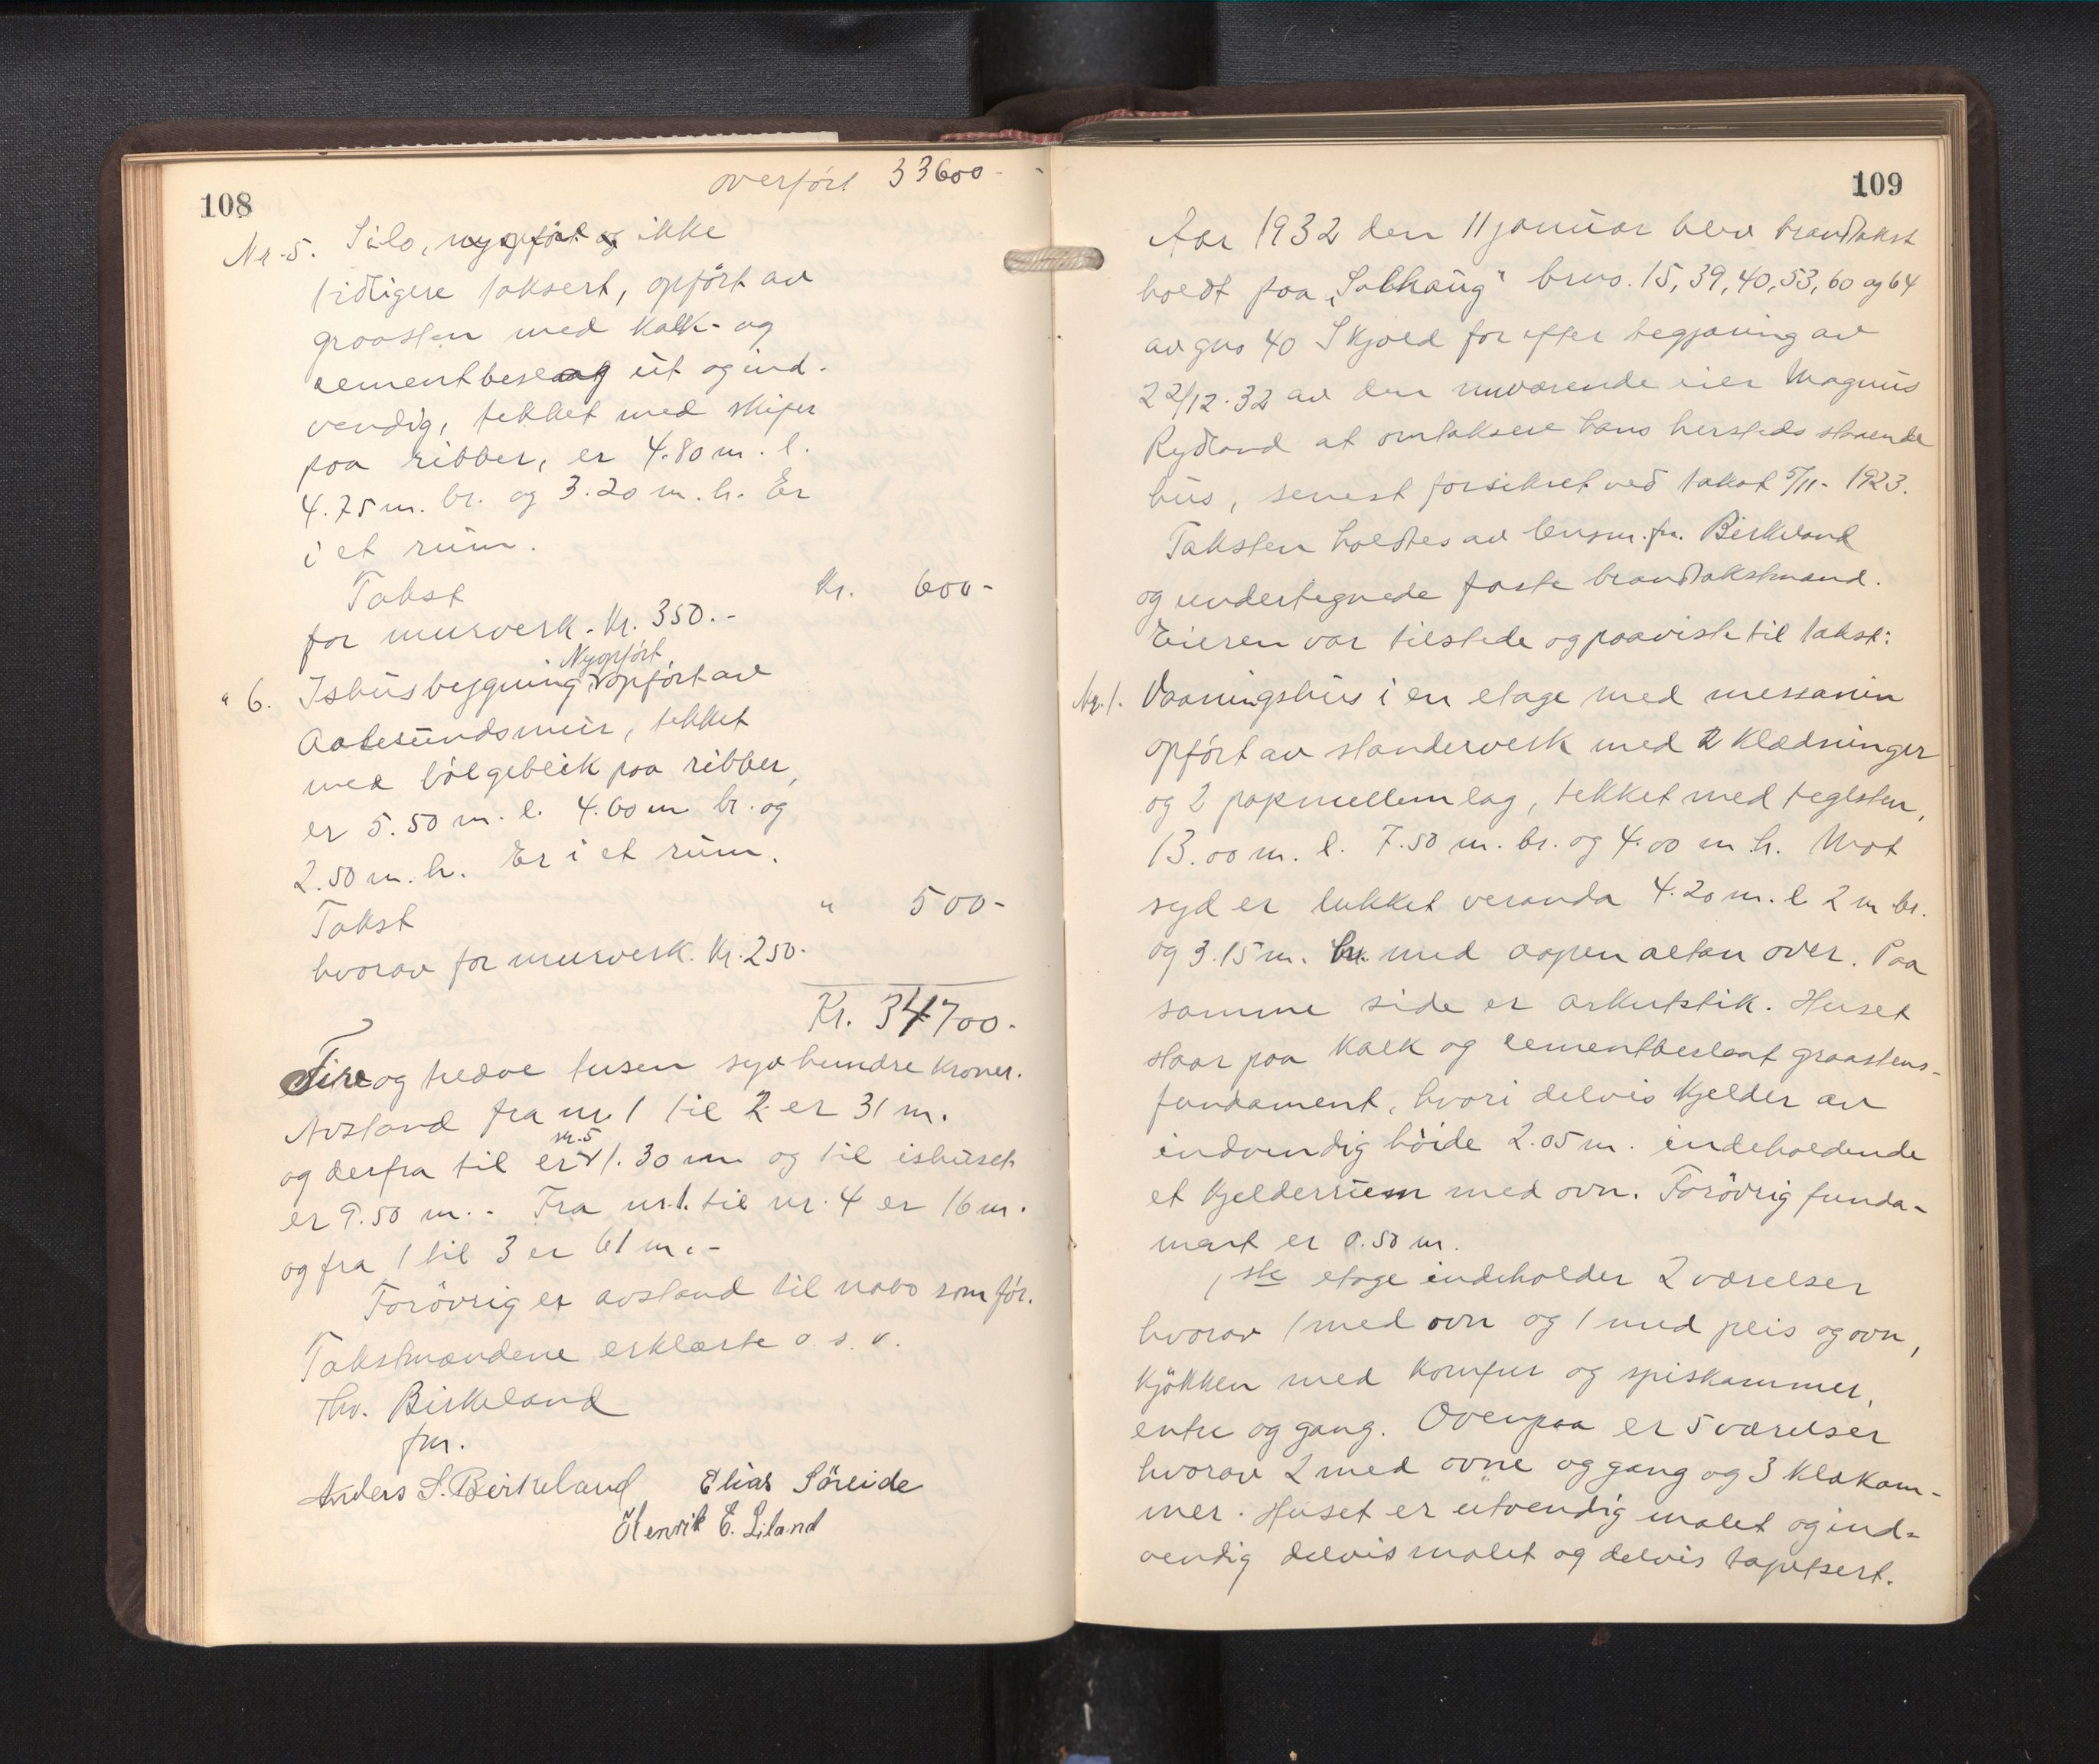 108
overført 33600-
Nr. 5. Silo, nyopført og ikke
tidligere taksert, opført av
graasten med kalk- og
cementbeslaag ut og ind-
vendig, tekket med skifer
paa ribber, er 4.80 m. l.
4.75 m. br. og 3.20 m. h. Er
i et rum.
Takst Kr. 600-
for murverk. Kr. 350.-
Nyopført,
" 6. Ishusbygning, opført av
Aalesundsmur, tekket
med bølgeblik paa ribber,
er 5.50 m. l. 4.60 m br. og
2.50 m. h. Er i et rum.
Takst " 500-
hvorav for murverk. Kr. 250.
Kr. 34700.
Fire og tredve tusen syv hundre kroner.
Avstand fra nr. 1 til 2 er 31 m.
nr. 5
og derfra til er 1.30 m og til ishuset
er 9.50 m. - Fra nr. 1. til nr. 4 er 16 m.
og fra 1 til 3 er 61 m. -
Forøvrig er avstand til nabo som før.
Takstmændene erklærte o. s. v.
Thv. Birkeland
fm.
Anders S. Birkeland Elias Söreide
Henrik E. Liland
109
Aar 1932 den 11 januar blev brandtakst
holdt paa „Solhaug" brno. 15, 39, 40, 53, 60 og 64
av gno 40 Skjold for efter begjæring av
22/12.32 av den nuværende eier Magnus
Rydland at omtaksere hans hersteds staaende
hus, senest forsikret ved takst 5/11- 1923.
Taksten holdtes av lensm. fm. Birkeland
og undertegnede faste brandtakstmænd.
Eieren var tilstede og paaviste til takst:
Nr. 1. Vaaningshus i en etage med messanin
opført av standerverk med 2 klædninger
og 2 papmellemlag, tekket med teglsten,
13.00 m. l. 7.50 m. br. og 4.00 m h. Mot
syd er lukket veranda 4.20 m. l 2 m br.
og 3.15 m. h. med aapen altan over. Paa
samme side er arkutstik. Huset
staar paa kalk og cementbeslaat graastens-
fundament, hvori delvis kjelder av
indvendig høide 2.05 m. indeholdende
et kjelderrum med ovn. Forøvrig funda-
ment er 0.50 m.
1ste etage indeholder 2 værelser
hvorav 1 med ovn og 1 med peis og ovn,
kjøkken med komfur og spiskammer,
entre og gang. Ovenpaa er 5 værelser
hvorav 2 med ovne og gang og 3 klækam-
mer. Huset er utvendig malet og ind-
vendig delvis malet og delvis tapetsert.